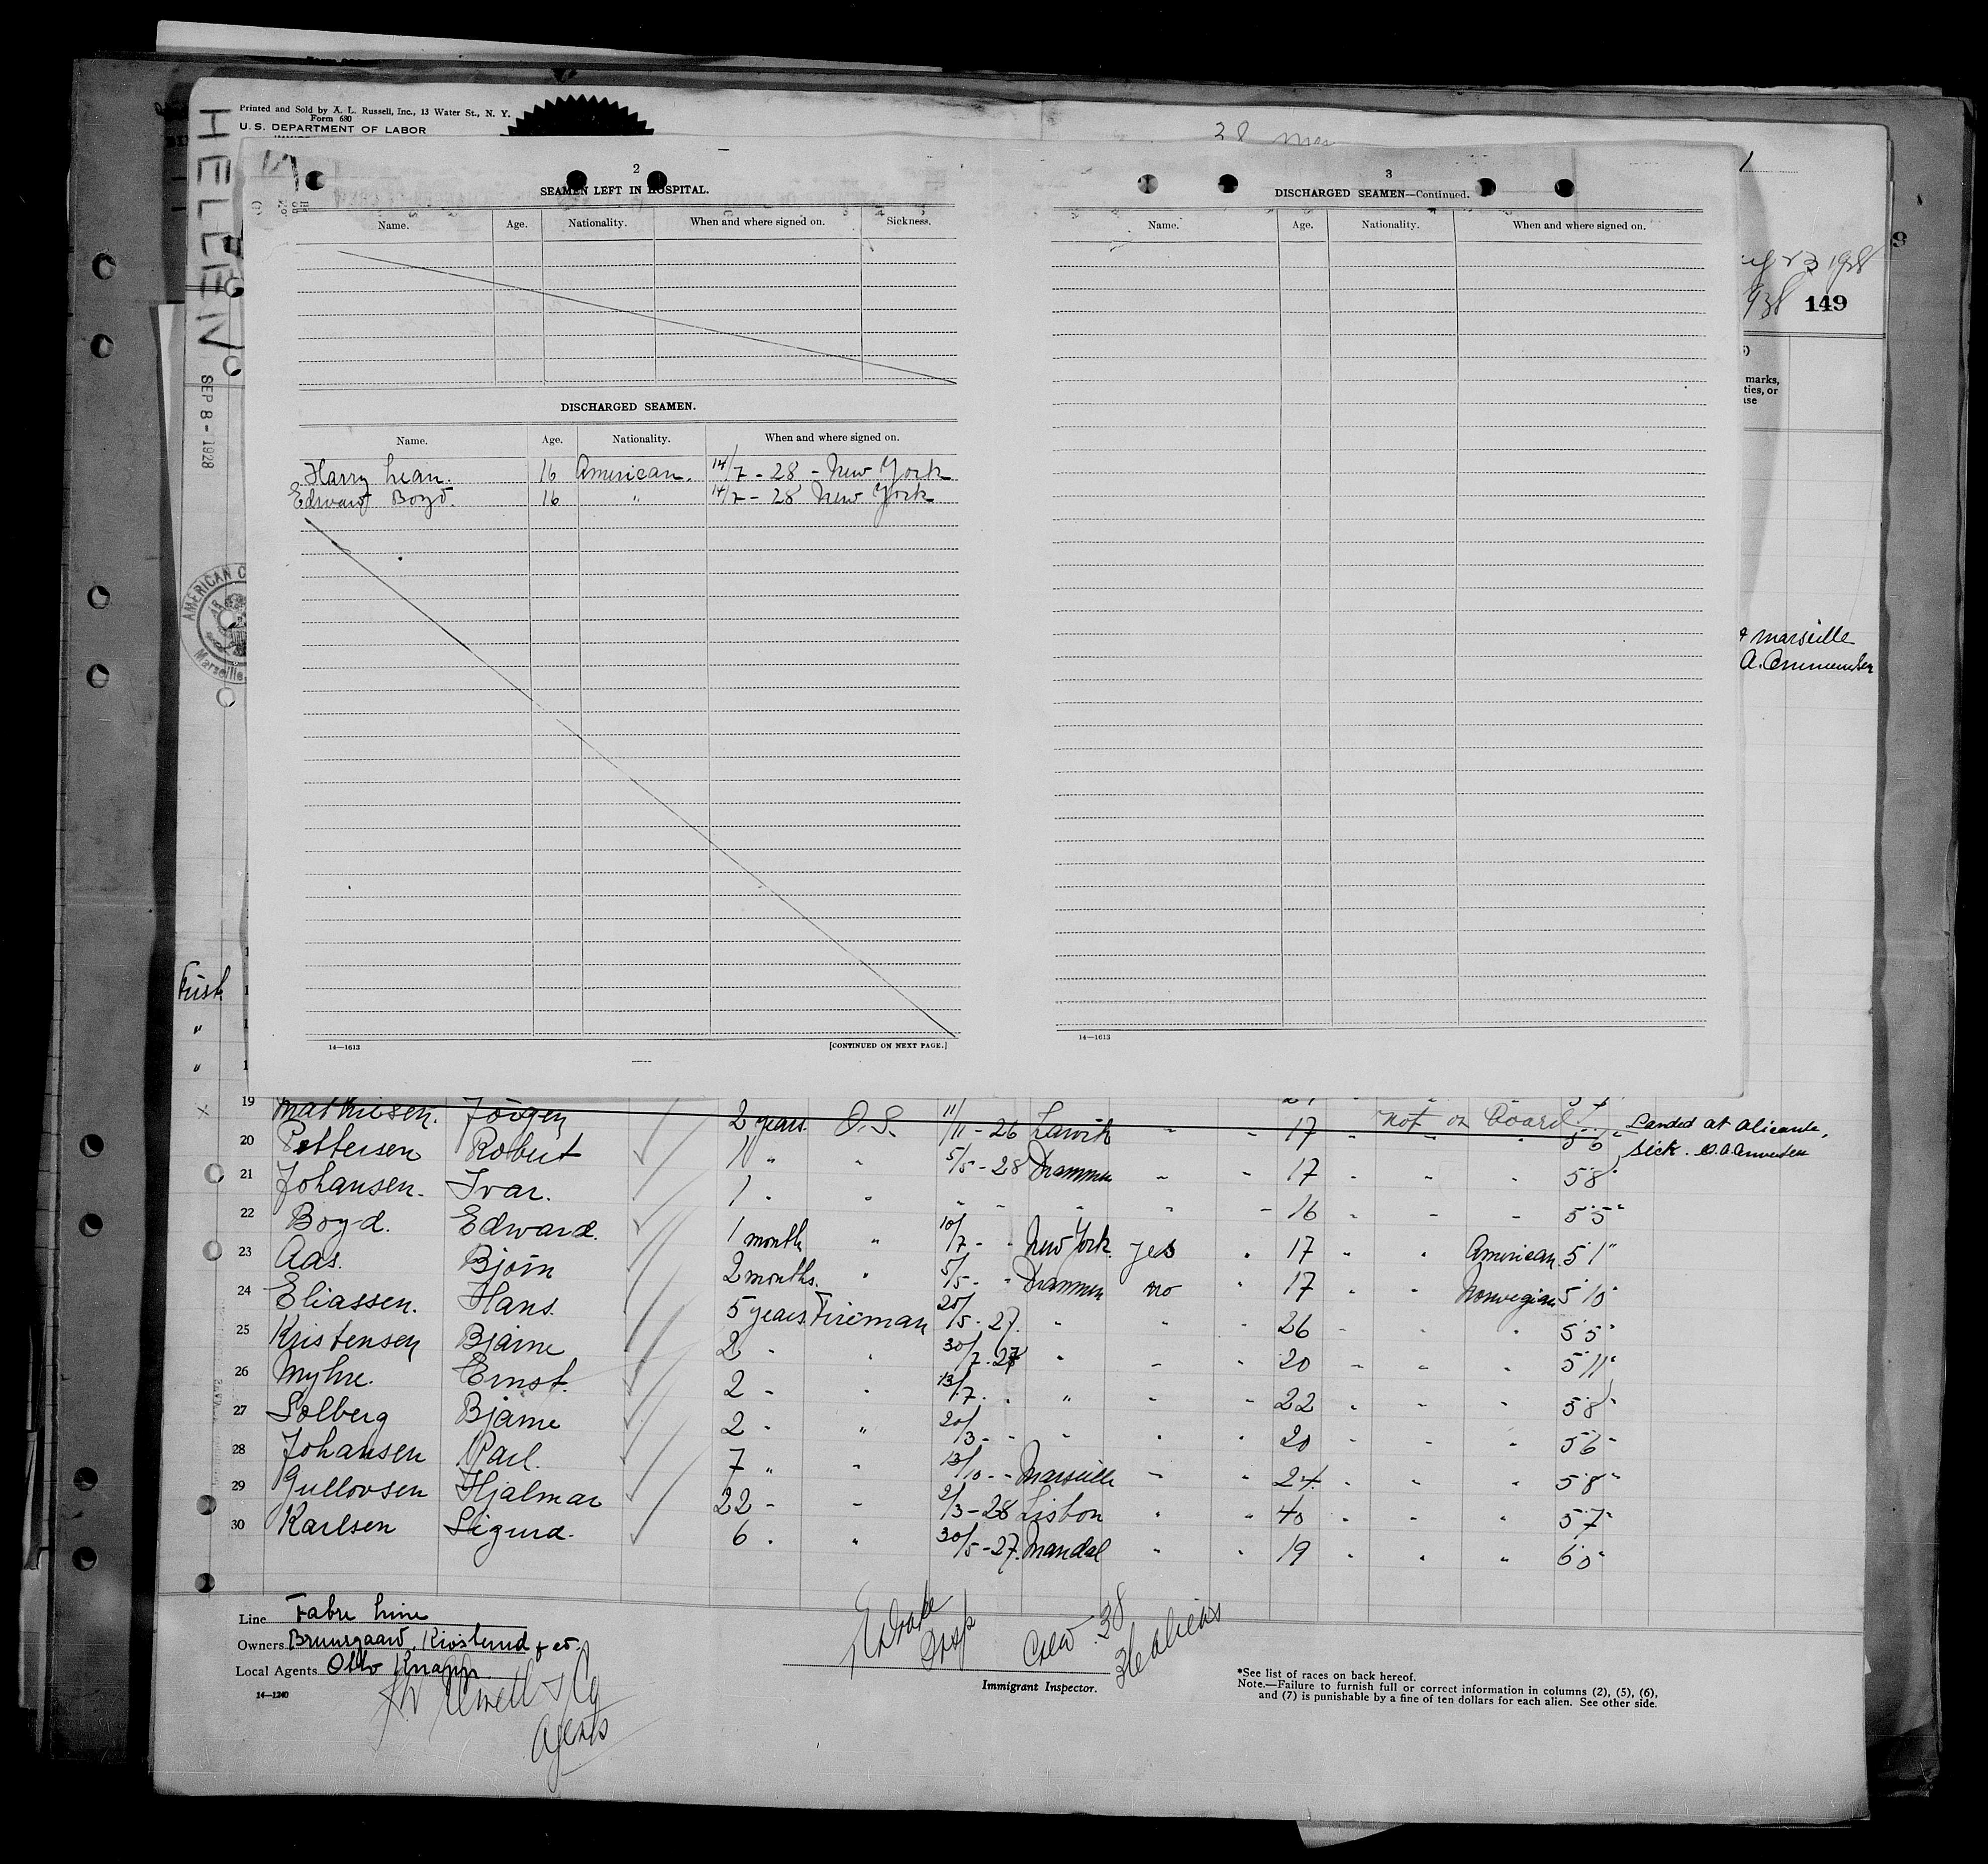 Printed and Sold by A. L. Russell, Inc., 13 Water St., N. Y.
Form 680
U. S. DEPARTMENT OF LABOR
38 men
HELLEN
SEP 8 - 1928
2
SEAMEN LEFT IN HOSPITAL.
Name. Age. Nationality. When and where signed on. Sickness.
DISCHARGED SEAMEN.
Name. Age. Nationality. When and where signed on.
Harry Lean. 16 American. 14/7 - 28 - New York
Edward Boyd. 16 " 14/7 - 28 New York
14—1613 [CONTINUED ON NEXT PAGE.]
3
DISCHARGED SEAMEN—Continued.
Name. Age. Nationality. When and where signed on.
14—1613
23 1928
149
marks,
ties, or
Marseille
AMERICAN C
Marseille
First
"
"
19 Mathiesen. Jörgen 2 years. O.S. 11/11 - 26 Larvik - - 17 - not on board Landed at Alicante,
20 Pettersen Robert 1 " - 5/5 - 28 Drammen - - 17 - - - 5'8" sick.
21 Johansen. Ivar. 1 - - - - - - - 16 - - - 5'5"
22 Boyd. Edward. 1 month " 10/7 - - New York. yes - 17 " - American 5'1"
23 Aas. Bjørn 2 months. " 5/5 - - Drammen no - 17 - - Norwegian 5'10"
24 Eliassen. Hans. 5 years Fireman 25/5 - 27. - - - 26 - - - 5'5"
25 Kristensen Bjarne 2 - - 30/7 - 27 - - - 20 - - - 5'11"
26 Myhre. Ernst. 2 - - 13/7 - - " - - 22 - - - 5'8"
27 Solberg Bjarne 2 - " 20/3 - - - - - 20 - - - 5'6"
28 Johansen Carl. 7 " - 13/10 - - Marseille - - 24 - - - 5'8"
29 Gullovsen Hjalmar 22 - - 2/3 - 28 Lisbon - - 40 - - - 5'7"
30 Karlsen Sigurd. 6 - - 30/5 - 27. Mandal - - 19 - - - 6'0"
Line Fabre Line
Owners Bruusgaard, Kiøsterud & co.
Local Agents Otto Knapp
14—1240
& Co
Agents
Crew 38
Immigrant Inspector.
*See list of races on back hereof.
Note.—Failure to furnish full or correct information in columns (2), (5), (6),
and (7) is punishable by a fine of ten dollars for each alien. See other side.